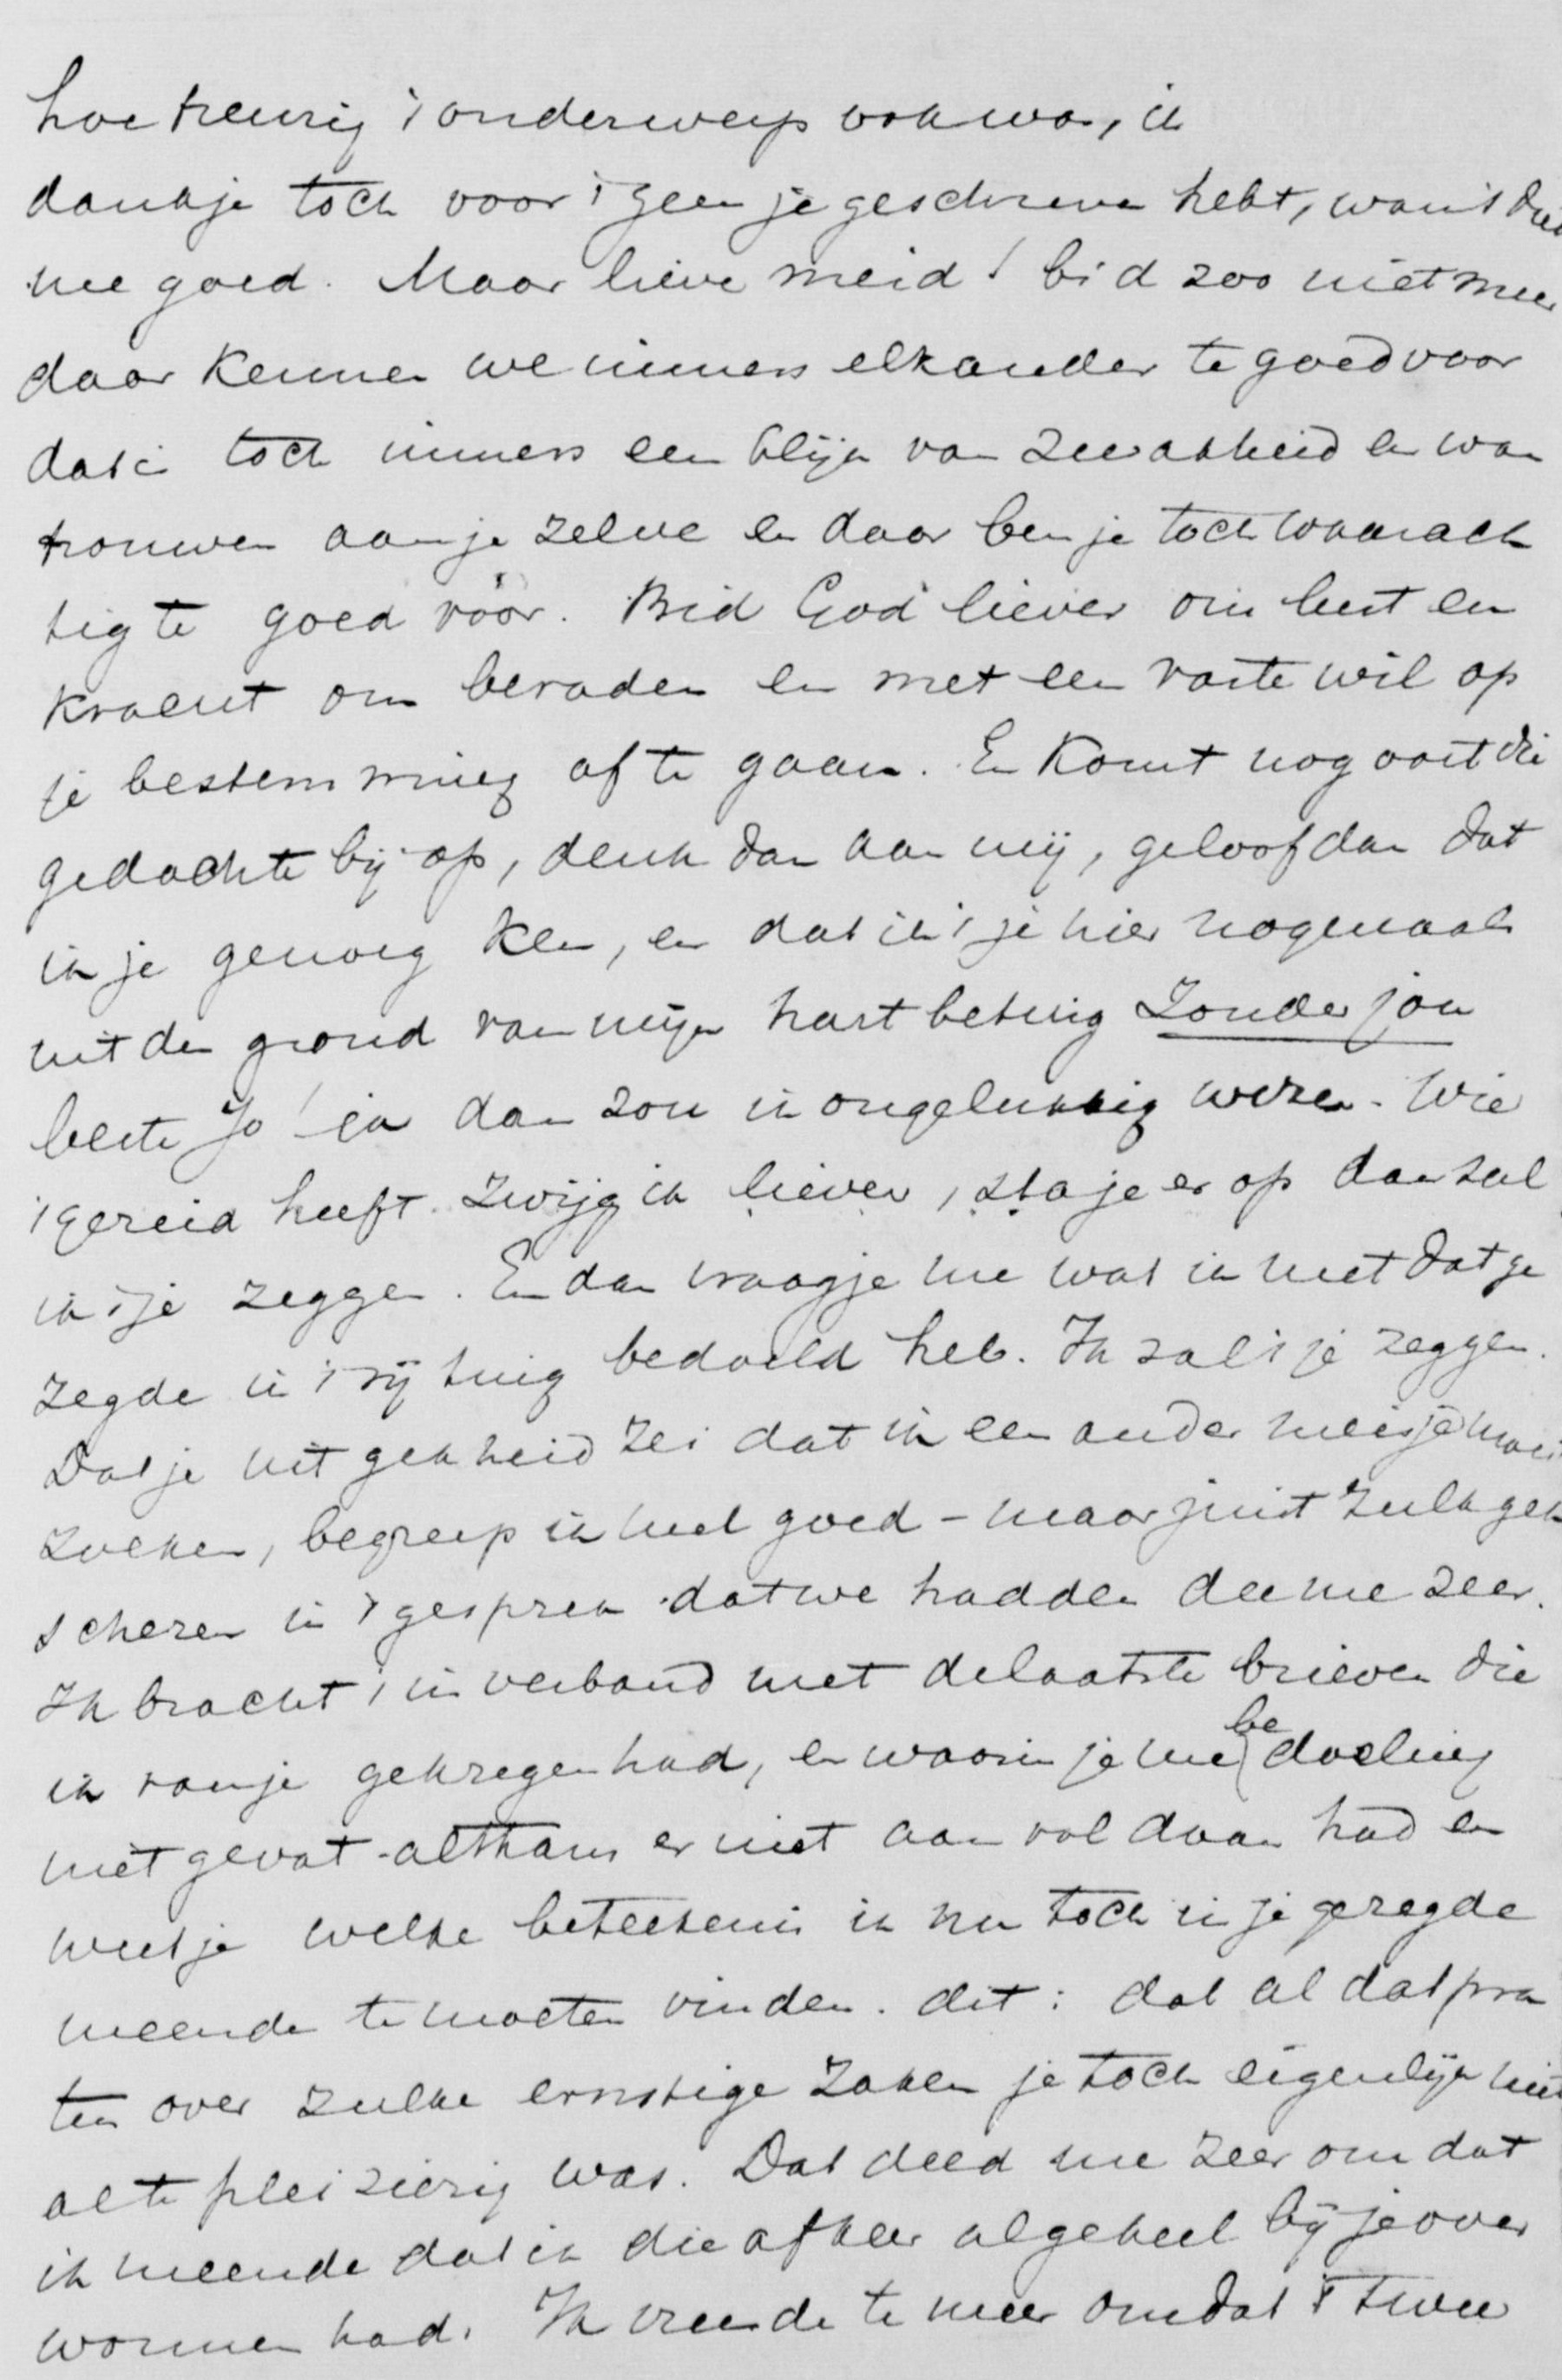 hoe treurig 't onderwerp ook was, ik
dank je toch voor 't geen je geschreven hebt, want 't deed
me goed. Maar lieve meid! bid zoo niet meer
daar kennen we immers elkander te goed voor
dat is toch immers een blijk van zwakheid en wan
trouwen aan je zelve en daar ben je toch waarach
tig te goed vóór. Bid God liever om lust en
kracht om beraden en met een vaste wil op
je bestemming af te gaan. En komt nog ooit die
gedachte bij je op, denk dan aan mij, geloof dan dat
ik je genoeg ken, en dat ik 't je hier nogmaals
uit den grond van mijn hart betuig Zonder jou
beste Jo! ja dan zou ik ongelukkig wezen. Wie
't gezeid heeft zwijg ik liever, sta je er op dan zal
ik 't je zeggen. En dan vraag je me wat ik met dat ge
zegde in 't rijtuig bedoeld heb. Ik zal 't je zeggen.
Dat je uit gekheid zei dat ik een ander meisje moest
zoeken, begreep ik heel goed - maar juist zulk gek
scheren in 't gesprek dat we hadden dee me zeer.
Ik bracht 't in verband met de laatste brieven die
ik van je gekregen had, en waarin je me bedoeling
niet gevat - althans er niet aan voldaan had en
weet je welke beteekenis ik nu toch in je gezegde
meende te moeten vinden. dit: dat al dat pra
ten over zulke ernstige zaken je toch eigenlijk niet
al te pleizierig was. Dat deed me zeer omdat
ik meende dat ik die afkeer algeheel bij je over
wonnen had. Ik vreesde te meer omdat 't twee